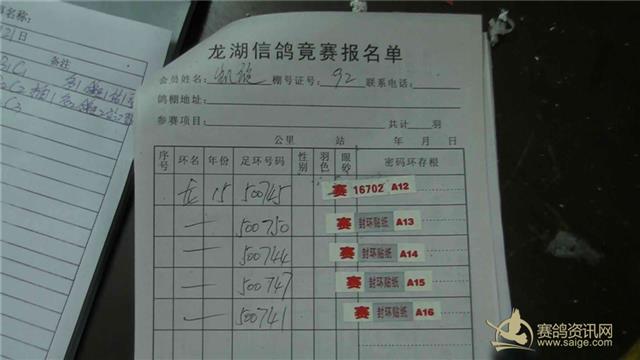 名称:
21日
备注
龙湖信鸽竞赛报名单
会员姓名: 棚号证号: 92 联系电话:
鸽棚地址:
参赛项目: 共计 羽
公里 站 年 月 日
序号 环名 年份 足环号码 性别 羽色 眼砂 密码环存根
15 500745 赛 16702 A12
一 500750 赛 封环贴纸 A13
一 500744 赛 封环贴纸 A14
一 500747 赛 封环贴纸 A15
一 500741 赛 封环贴纸 A16
赛鸽资讯网
www.saige.com